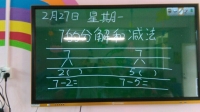 2月27日 星期一
7的分解和减法
7 7
2( ) 5( )
7-2= 7-5=